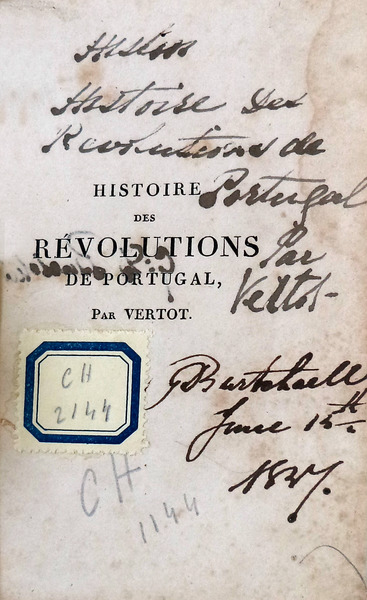 Histoire Des
Revolutions de
Portugal
Par
Vertot
HISTOIRE
DES
RÉVOLUTIONS
DE PORTUGAL,
PAR VERTOT.
CH
2144
June 12th
CH
1144